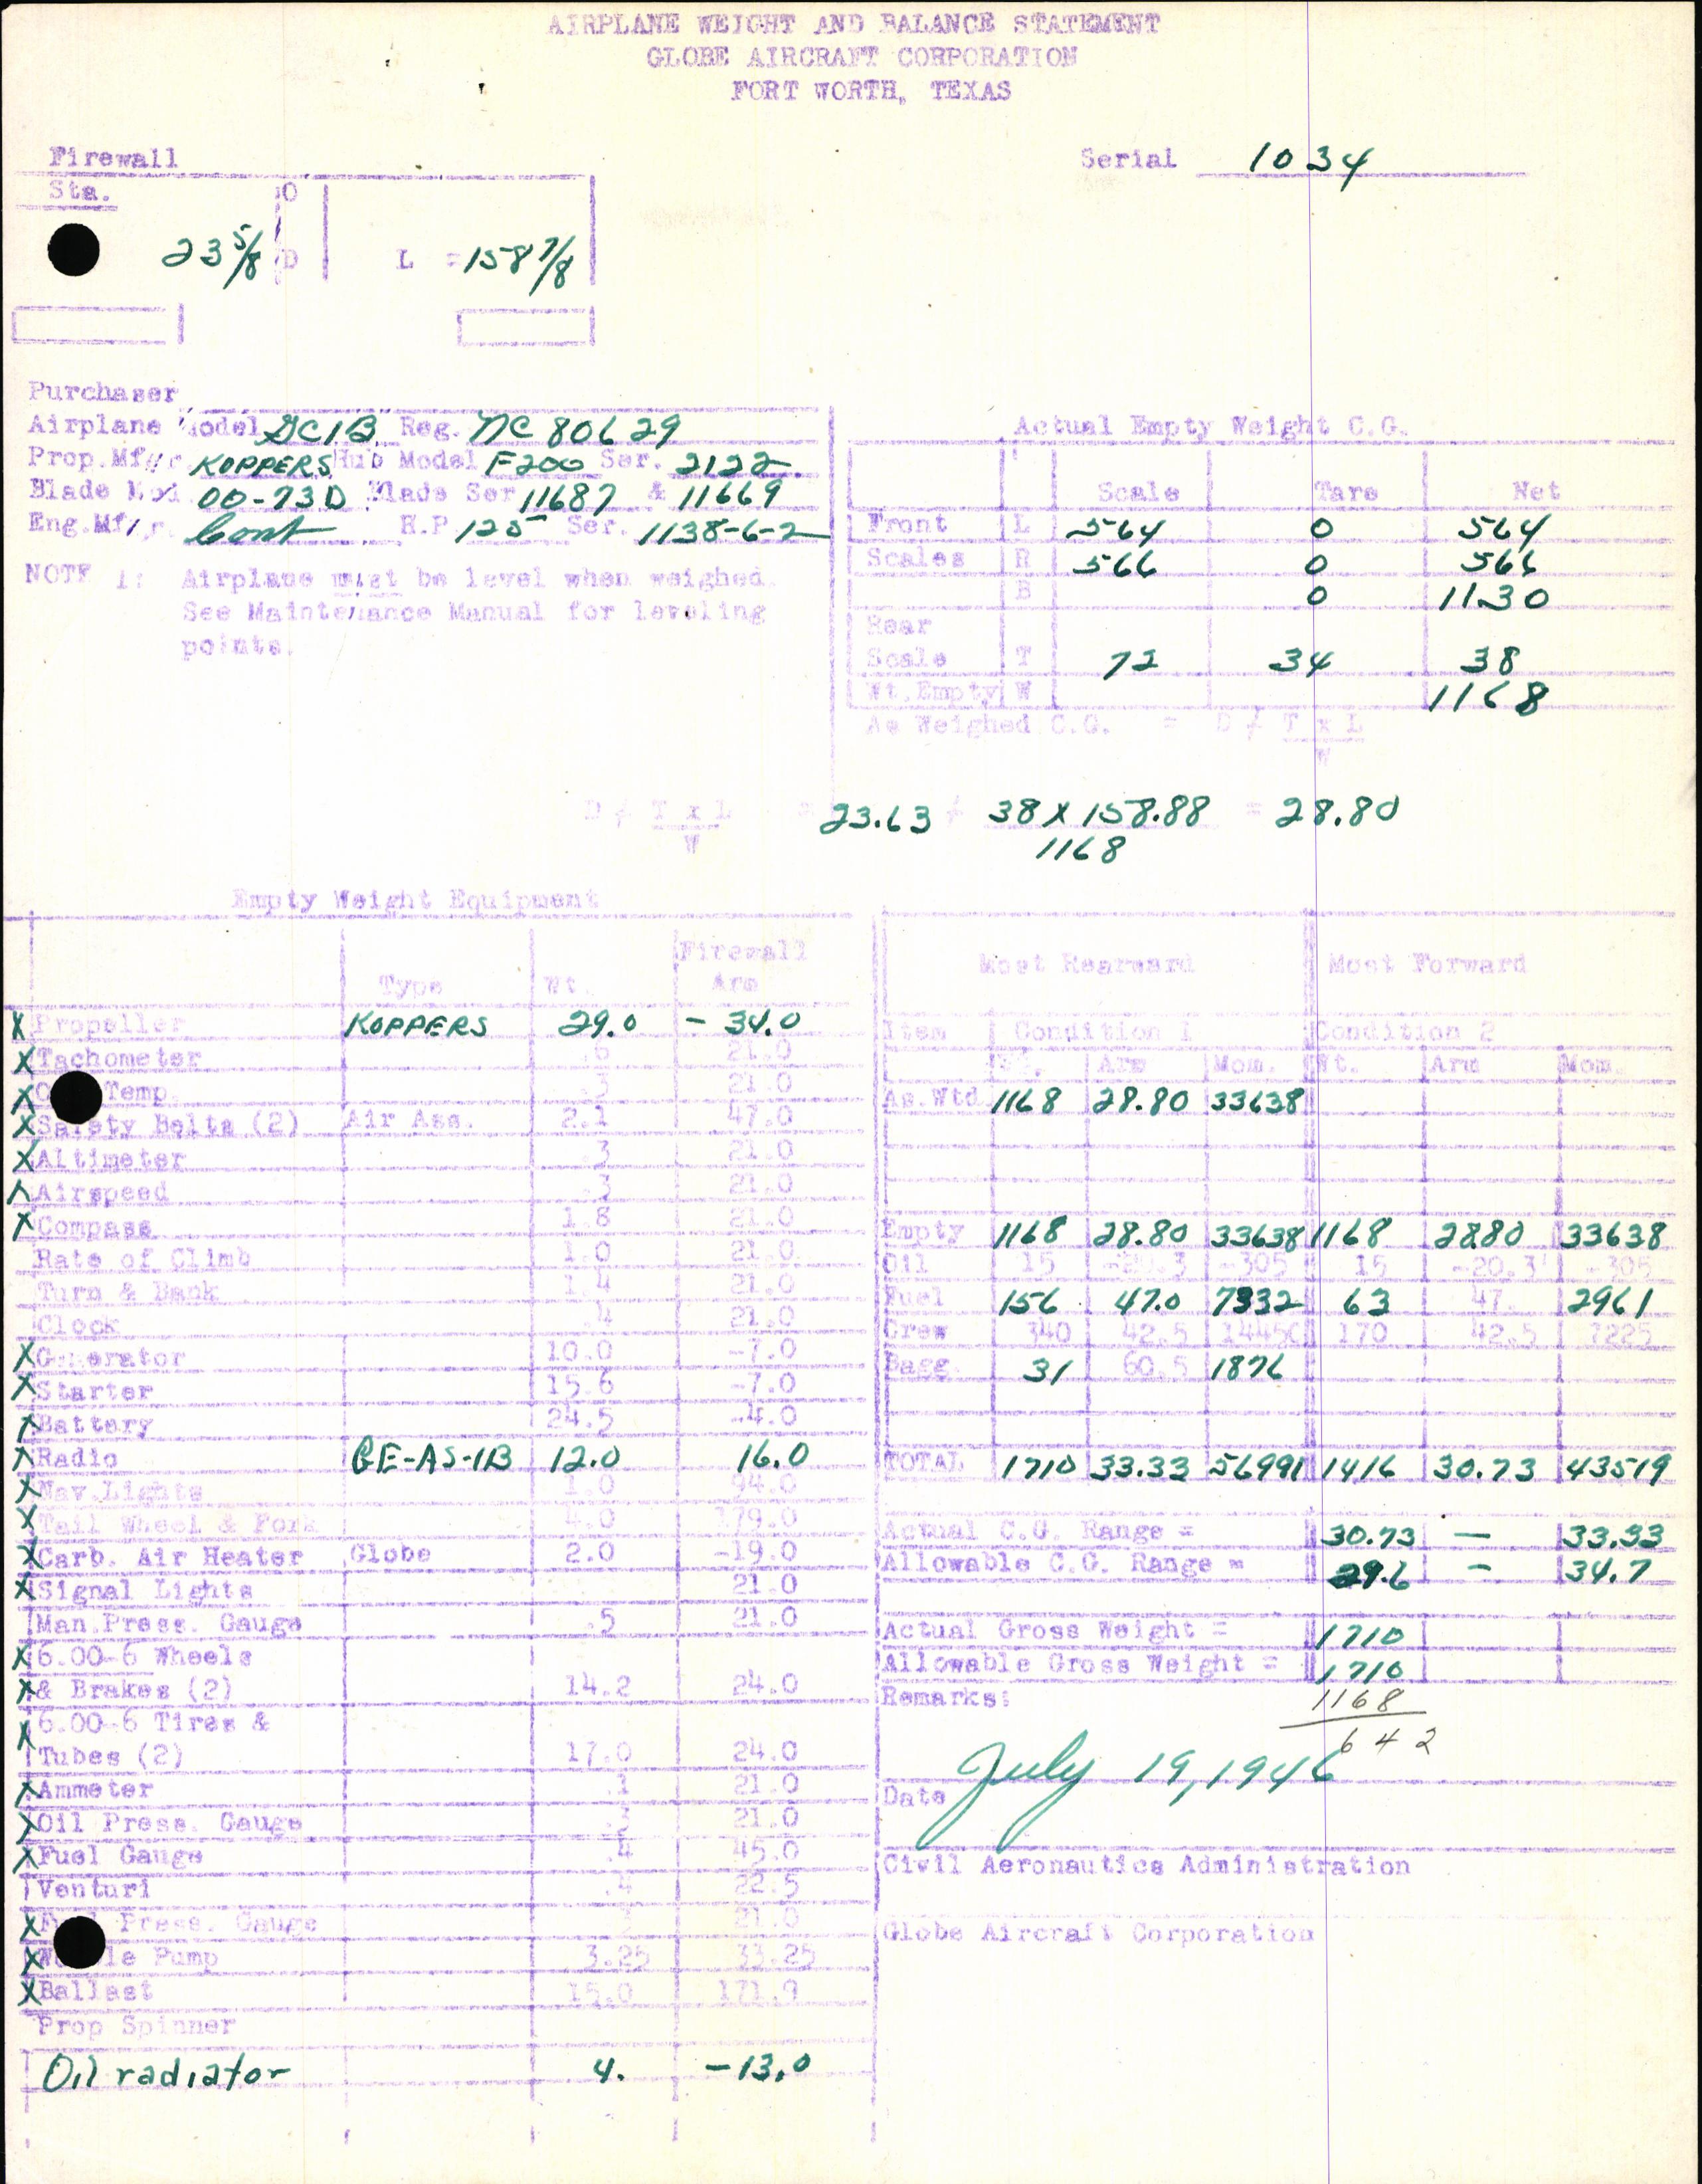 AIRPLANE WEIGHT AND BALANCE STATEMENT
GLOBE AIRCRAFT CORPORATION
FORT WORTH, TEXAS
Firewall
Serial 1034
Sta. O
23 5/8 D L = 158 7/8
Purchaser
Airplane Model GC1B Reg. NC 80629
Prop.Mfgr. KOPPERS Hub Model F200 Ser. 2122
Blade Mod. 00-73D Blade Ser 11687 & 11669
Eng.Mfgr. Cont H.P. 125 Ser. 1138-6-2
NOTE 1: Airplane must be level when weighed.
See Maintenance Manual for leveling
points.
Actual Empty Weight C.G.
Scale Tare Net
Front L 564 0 564
Scales R 566 0 566
B 0 1130
Rear
Scale T 72 34 38
Wt.Empty W 1168
As Weighed C.G. = D ≠ T x L
W
D ≠ T x L = 23.63 ≠ 38 X 158.88 = 28.80
W 1168
Empty Weight Equipment
Type Wt. Firewall Arm
X Propeller KOPPERS 29.0 - 34.0
X Tachometer .6 21.0
X Temp. .3 21.0
X Safety Belts (2) Air Ass. 2.1 47.0
X Altimeter .3 21.0
X Airspeed .3 21.0
X Compass 1.8 21.0
Rate of Climb 1.0 21.0
Turn & Bank 1.4 21.0
Clock .4 21.0
X Generator 10.0 -7.0
X Starter 15.6 -7.0
X Battery 24.5 -4.0
X Radio GE-AS-1B 12.0 16.0
X Nav.Lights 1.0 94.0
X Tail Wheel & Fork 4.0 179.0
X Carb. Air Heater Globe 2.0 -19.0
X Signal Lights 21.0
Man.Press. Gauge .5 21.0
X 6.00-6 Wheels
X & Brakes (2) 14.2 24.0
X 6.00-6 Tires &
Tubes (2) 17.0 24.0
X Ammeter .1 21.0
X Oil Press. Gauge 21.0
X Fuel Gauge .4 45.0
Venturi .4 22.5
X Press. Gauge 21.0
X Pump 3.25 33.25
X Ballast 15.0 171.9
Prop Spinner
Oil radiator 4. -13.0
Most Rearward Most Forward
Item Condition 1 Condition 2
Wt. Arm Mom. Wt. Arm Mom.
As Wtd 1168 28.80 33638
Empty 1168 28.80 33638 1168 28.80 33638
Oil 15 -20.3 -305 15 -20.3 -305
Fuel 156 47.0 7332 63 47. 2961
Crew 340 42.5 14450 170 42.5 7225
Bagg. 31 60.5 1876
TOTAL 1710 33.33 56991 1416 30.73 43519
Actual C.G. Range = 30.73 — 33.33
Allowable C.G. Range = 29.6 - 34.7
Actual Gross Weight = 1710
Allowable Gross Weight = 1710
Remarks: 1168
642
July 19, 1946
Date
Civil Aeronautics Administration
Globe Aircraft Corporation